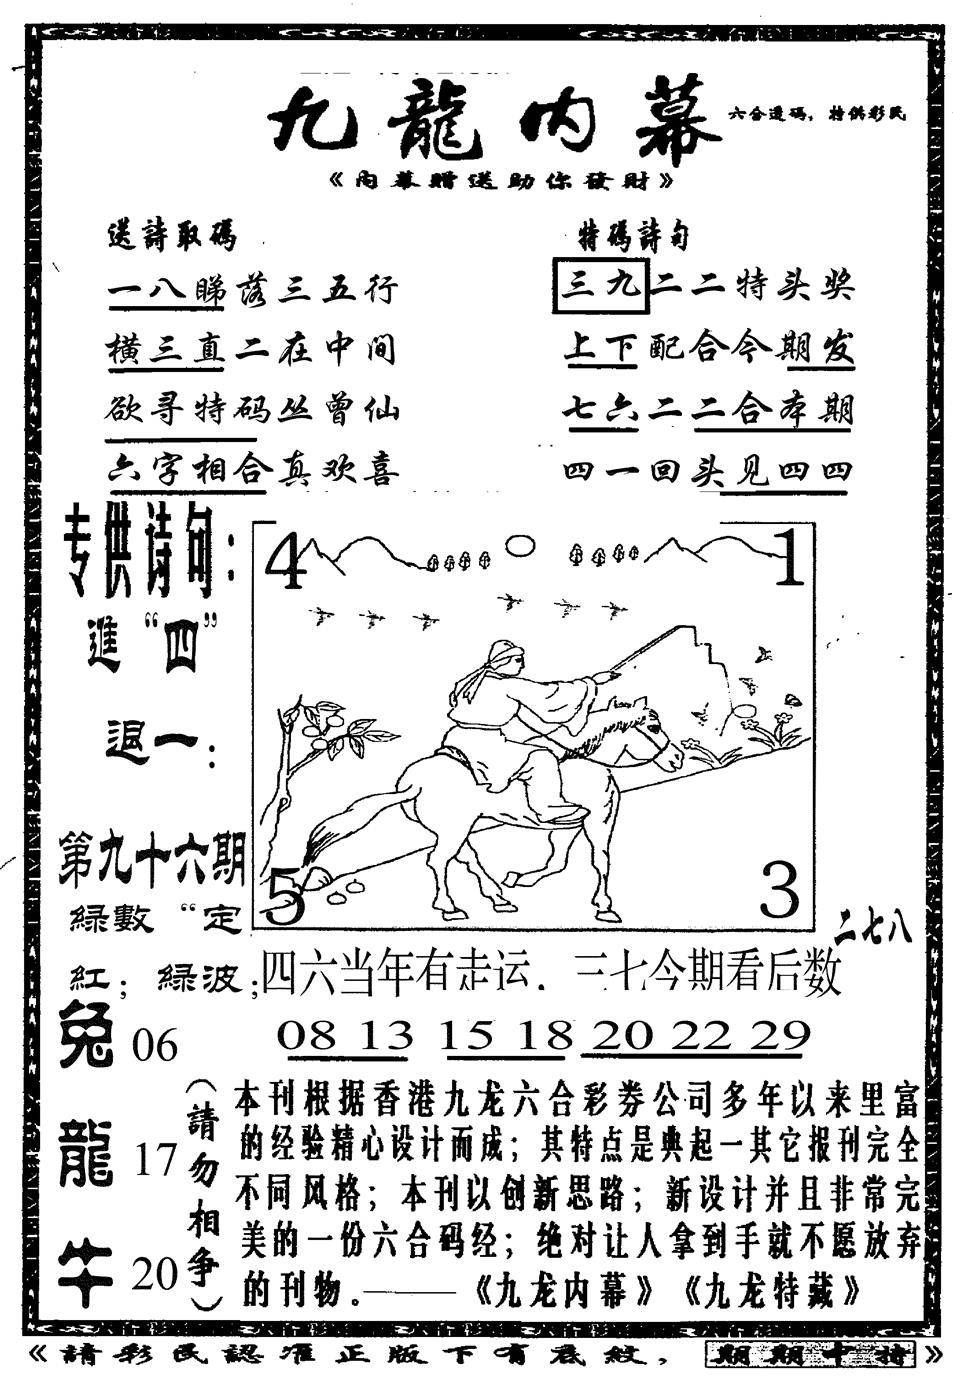 九龍内幕
六合透码，特供彩民
《内幕赠送助你發財》
送詩取碼
一八睇落三五行
横三直二在中间
欲寻特码丛曾仙
六字相合真欢喜
特碼詩句
三九二二特头奖
上下配合今期发
七六二二合本期
四一回头见四四
专供诗句：
進“四”
退一：
第九十六期
緑數“定
紅；緑波；
兔 06
龍 17
牛 20
（請勿相争）
4 1
5 3
二七八
四六当年有走运．三七今期看后数
08 13 15 18 20 22 29
本刊根据香港九龙六合彩券公司多年以来里富
的经验精心设计而成；其特点是典起一其它报刊完全
不同风格；本刊以创新思路；新设计并且非常完
美的一份六合码经；绝对让人拿到手就不愿放弃
的刊物．———《九龙内幕》《九龙特藏》
《請彩民認准正版下有底紋，期期中特》